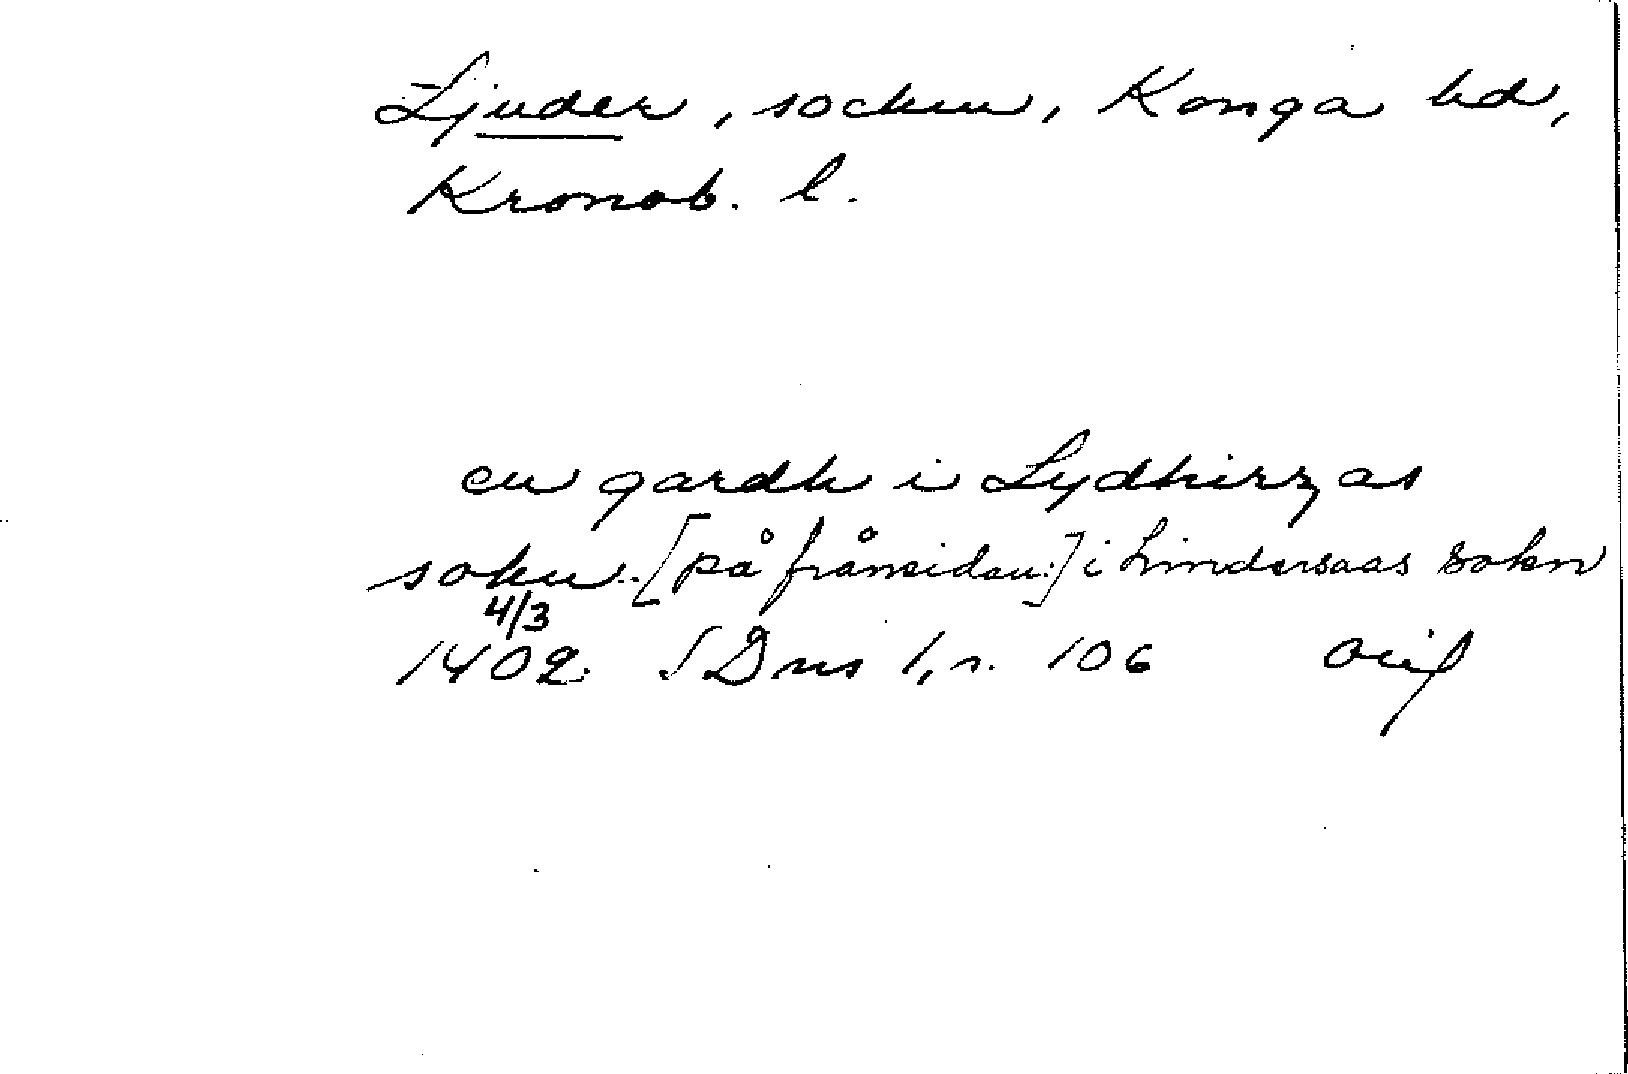 Ljuder, socken, Konga hd,
Kronob. l.
en gardh i Lydhirzas
sokn. [på frånsidan:] i Lindersaas sokn
4/3
1402. SDns 1, s. 106